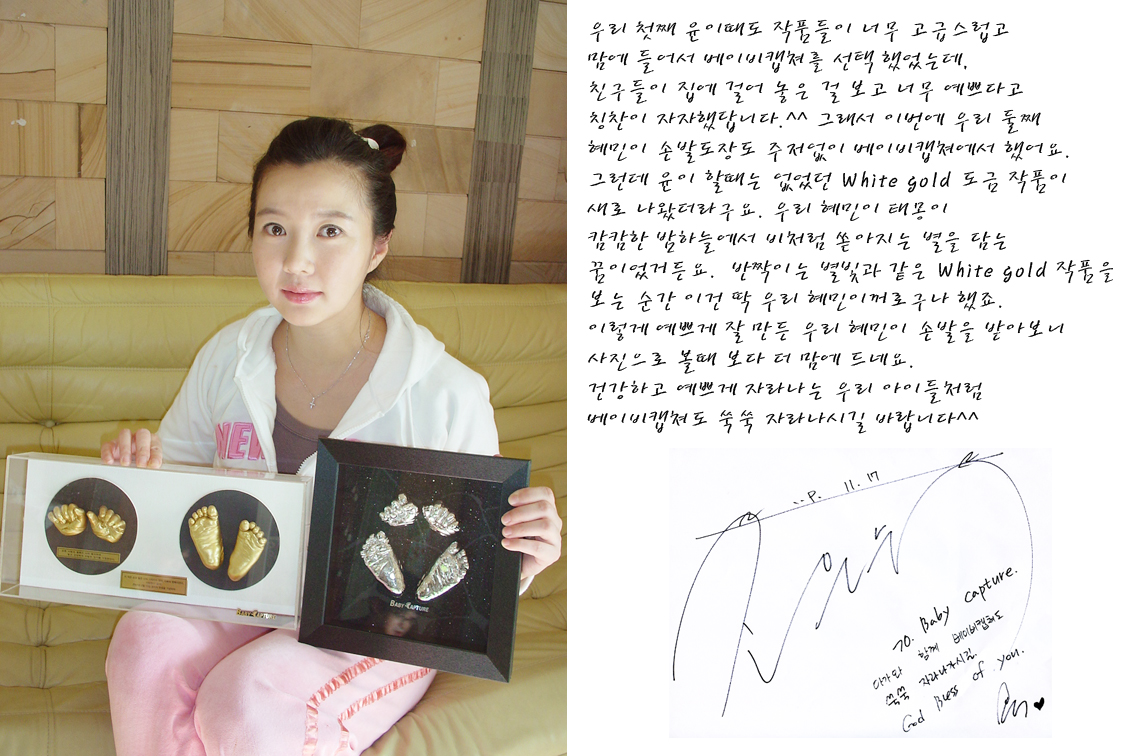 우리 첫째 윤이때도 작품들이 너무 고급스럽고
맘에 들어서 베이비캡쳐를 선택 했었는데,
친구들이 집에 걸어 놓은 걸 보고 너무 예쁘다고
칭찬이 자자했답니다.^^ 그래서 이번에 우리 둘째
혜민이 손발도장도 주저없이 베이비캡쳐에서 했어요.
그런데 윤이 할때는 없었던 White gold 도금 작품이
새로 나왔더라구요. 우리 혜민이 태몽이
캄캄한 밤하늘에서 비처럼 쏟아지는 별을 담는
꿈이었거든요. 반짝이는 별빛과 같은 White gold 작품을
보는 순간 이건 딱 우리 혜민이꺼로구나 했죠.
이렇게 예쁘게 잘 만든 우리 혜민이 손발을 받아보니
사진으로 볼때 보다 더 맘에 드네요.
건강하고 예쁘게 자라나는 우리 아이들처럼
베이비캡쳐도 쑥쑥 자라나시길 바랍니다^^
11. 17
TO. Baby capture.
아가와 함께 베이비캡쳐도
쑥쑥 자라나가시길.
God Bless of you.
NEW
BABY-CAPTURE
BABY-CAPTURE